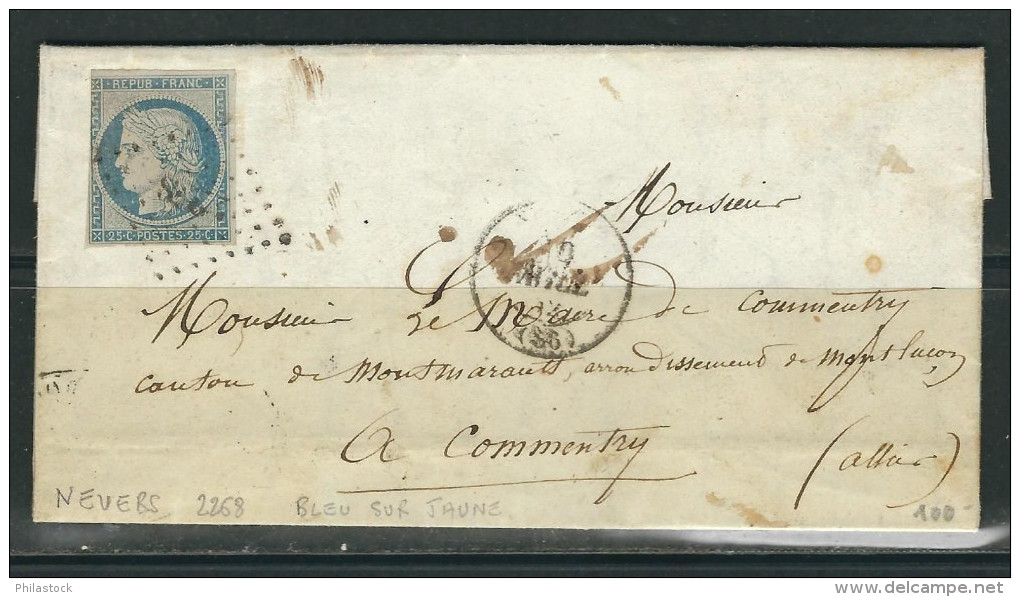 REPUB · FRANC ·
25 · C · POSTES · 25 · C
Monsieur
19
AVRIL
(56)
Monsieur Le Maire de Commentry
canton de Montmarault, arrondissement de Montluçon
A Commentry (allier)
NEVERS 2268 BLEU SUR JAUNE 100-
Philastock
www.delcampe.net